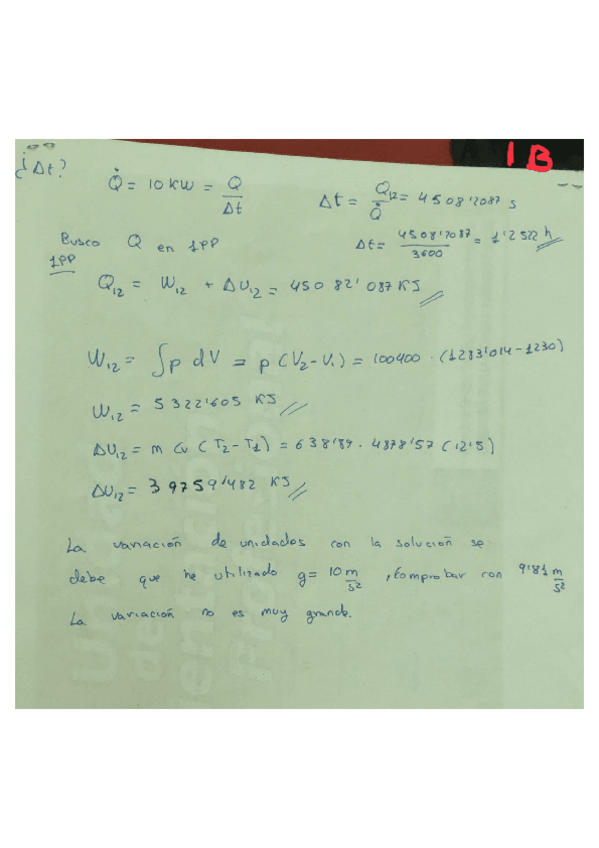 1B
¿Δt?
Q̇ = 10 KW = Q/Δt
Δt = Q₁₂/Q̇ = 4508'2087 s
Busco Q en 1PP
Δt = 4508'2087/3600 = 1'2522 h
1PP
Q₁₂ = W₁₂ + ΔU₁₂ = 45082'087 KJ
W₁₂ = ∫p dV = p (V₂-V₁) = 100400 · (1283'014 - 1230)
W₁₂ = 5322'605 KJ
ΔU₁₂ = m Cv (T₂-T₁) = 638'89 · 4878'57 (12'5)
ΔU₁₂ = 39759'482 KJ
La variación de unidades con la solución se
debe que he utilizado g = 10 m/s², Comprobar con 9'81 m/s²
La variación no es muy grande.